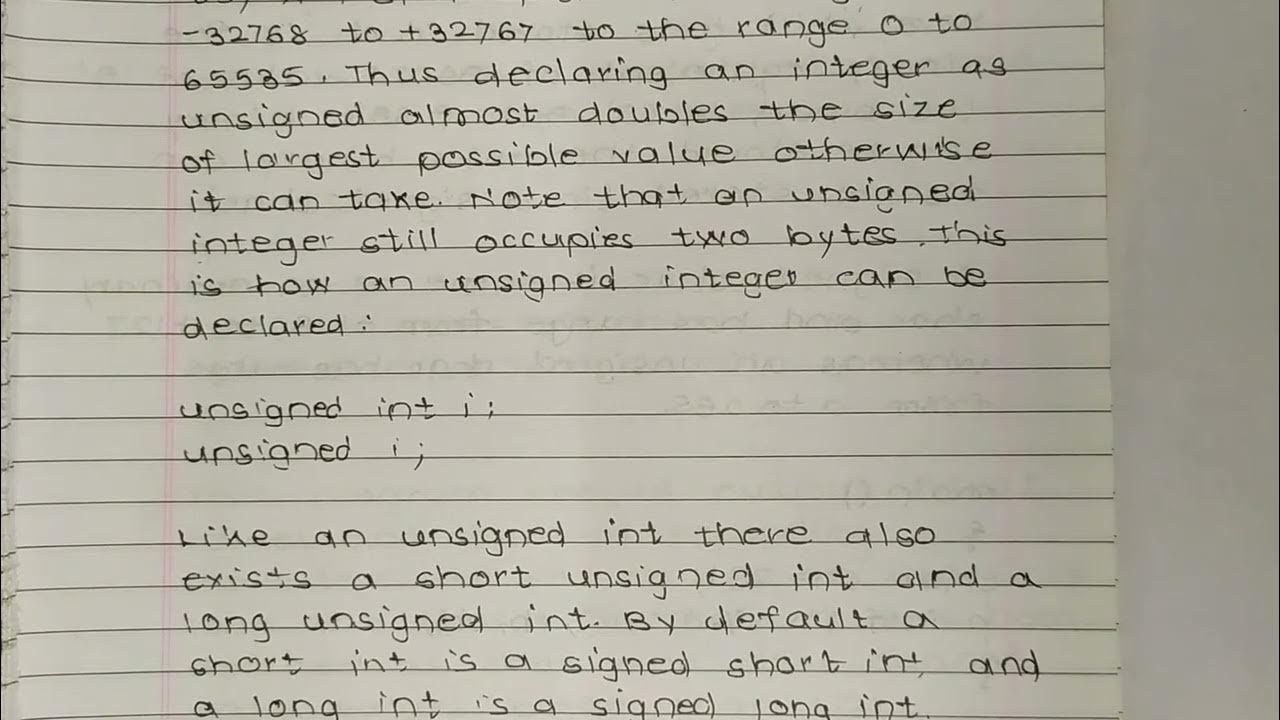 -32768 to +32767 to the range 0 to
65535. Thus declaring an integer as
unsigned almost doubles the size
of largest possible value otherwise
it can take. Note that an unsigned
integer still occupies two bytes. This
is how an unsigned integer can be
declared:
unsigned int i;
unsigned i;
Like an unsigned int there also
exists a short unsigned int and a
long unsigned int. By default a
short int is a signed short int, and
a long int is a signed long int.